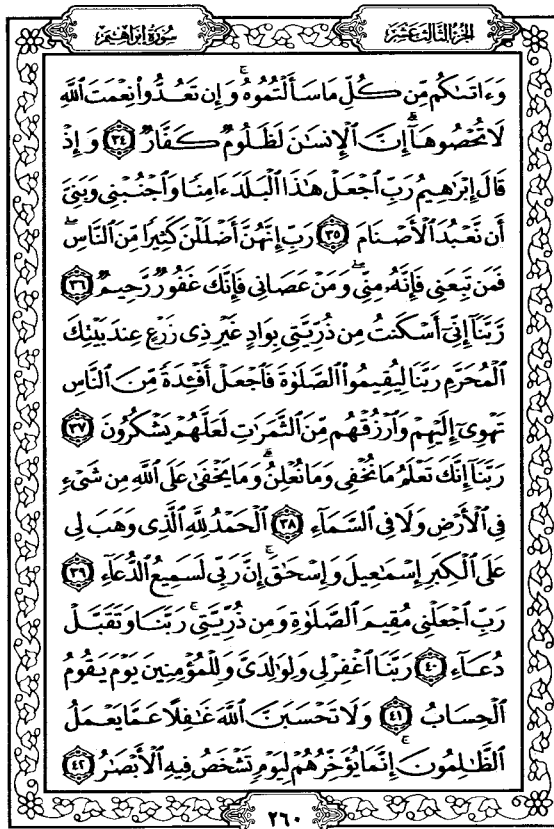 سورة إبراهيم
الجزء الثالث عشر
وَءَاتَىٰكُم مِّن كُلِّ مَا سَأَلْتُمُوهُ ۚ وَإِن تَعُدُّوا۟ نِعْمَتَ ٱللَّهِ
لَا تُحْصُوهَآ ۗ إِنَّ ٱلْإِنسَـٰنَ لَظَلُومٌ كَفَّارٌ ﴿٣٤﴾ وَإِذْ
قَالَ إِبْرَٰهِيمُ رَبِّ ٱجْعَلْ هَـٰذَا ٱلْبَلَدَ ءَامِنًا وَٱجْنُبْنِى وَبَنِىَّ
أَن نَّعْبُدَ ٱلْأَصْنَامَ ﴿٣٥﴾ رَبِّ إِنَّهُنَّ أَضْلَلْنَ كَثِيرًا مِّنَ ٱلنَّاسِ ۖ
فَمَن تَبِعَنِى فَإِنَّهُۥ مِنِّى ۖ وَمَنْ عَصَانِى فَإِنَّكَ غَفُورٌ رَّحِيمٌ ﴿٣٦﴾
رَّبَّنَآ إِنِّىٓ أَسْكَنتُ مِن ذُرِّيَّتِى بِوَادٍ غَيْرِ ذِى زَرْعٍ عِندَ بَيْتِكَ
ٱلْمُحَرَّمِ رَبَّنَا لِيُقِيمُوا۟ ٱلصَّلَوٰةَ فَٱجْعَلْ أَفْـِٔدَةً مِّنَ ٱلنَّاسِ
تَهْوِىٓ إِلَيْهِمْ وَٱرْزُقْهُم مِّنَ ٱلثَّمَرَٰتِ لَعَلَّهُمْ يَشْكُرُونَ ﴿٣٧﴾
رَبَّنَآ إِنَّكَ تَعْلَمُ مَا نُخْفِى وَمَا نُعْلِنُ ۗ وَمَا يَخْفَىٰ عَلَى ٱللَّهِ مِن شَىْءٍ
فِى ٱلْأَرْضِ وَلَا فِى ٱلسَّمَآءِ ﴿٣٨﴾ ٱلْحَمْدُ لِلَّهِ ٱلَّذِى وَهَبَ لِى
عَلَى ٱلْكِبَرِ إِسْمَـٰعِيلَ وَإِسْحَـٰقَ ۚ إِنَّ رَبِّى لَسَمِيعُ ٱلدُّعَآءِ ﴿٣٩﴾
رَبِّ ٱجْعَلْنِى مُقِيمَ ٱلصَّلَوٰةِ وَمِن ذُرِّيَّتِى ۚ رَبَّنَا وَتَقَبَّلْ
دُعَآءِ ﴿٤٠﴾ رَبَّنَا ٱغْفِرْ لِى وَلِوَٰلِدَىَّ وَلِلْمُؤْمِنِينَ يَوْمَ يَقُومُ
ٱلْحِسَابُ ﴿٤١﴾ وَلَا تَحْسَبَنَّ ٱللَّهَ غَـٰفِلًا عَمَّا يَعْمَلُ
ٱلظَّـٰلِمُونَ ۚ إِنَّمَا يُؤَخِّرُهُمْ لِيَوْمٍ تَشْخَصُ فِيهِ ٱلْأَبْصَـٰرُ ﴿٤٢﴾
٢٦٠